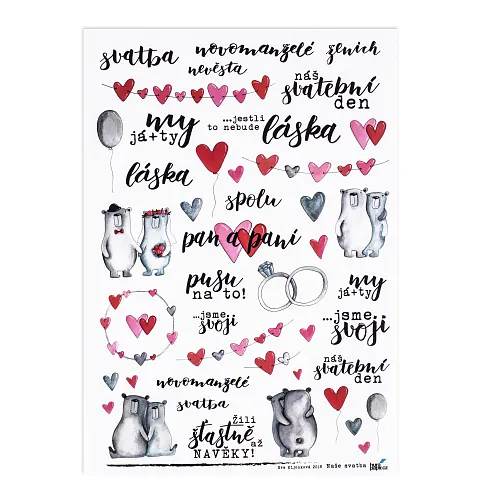 svatba
novomanželé
ženich
nevěsta
náš
svatební
den
my
já+ty
...jestli
to nebude
láska
láska
spolu
pan a paní
pusu
na to!
my
já+ty
...jsme
svoji
...jsme
svoji
náš
svatební
den
novomanželé
svatba
žili
šťastně
až
NAVĚKY!
Naše svatba